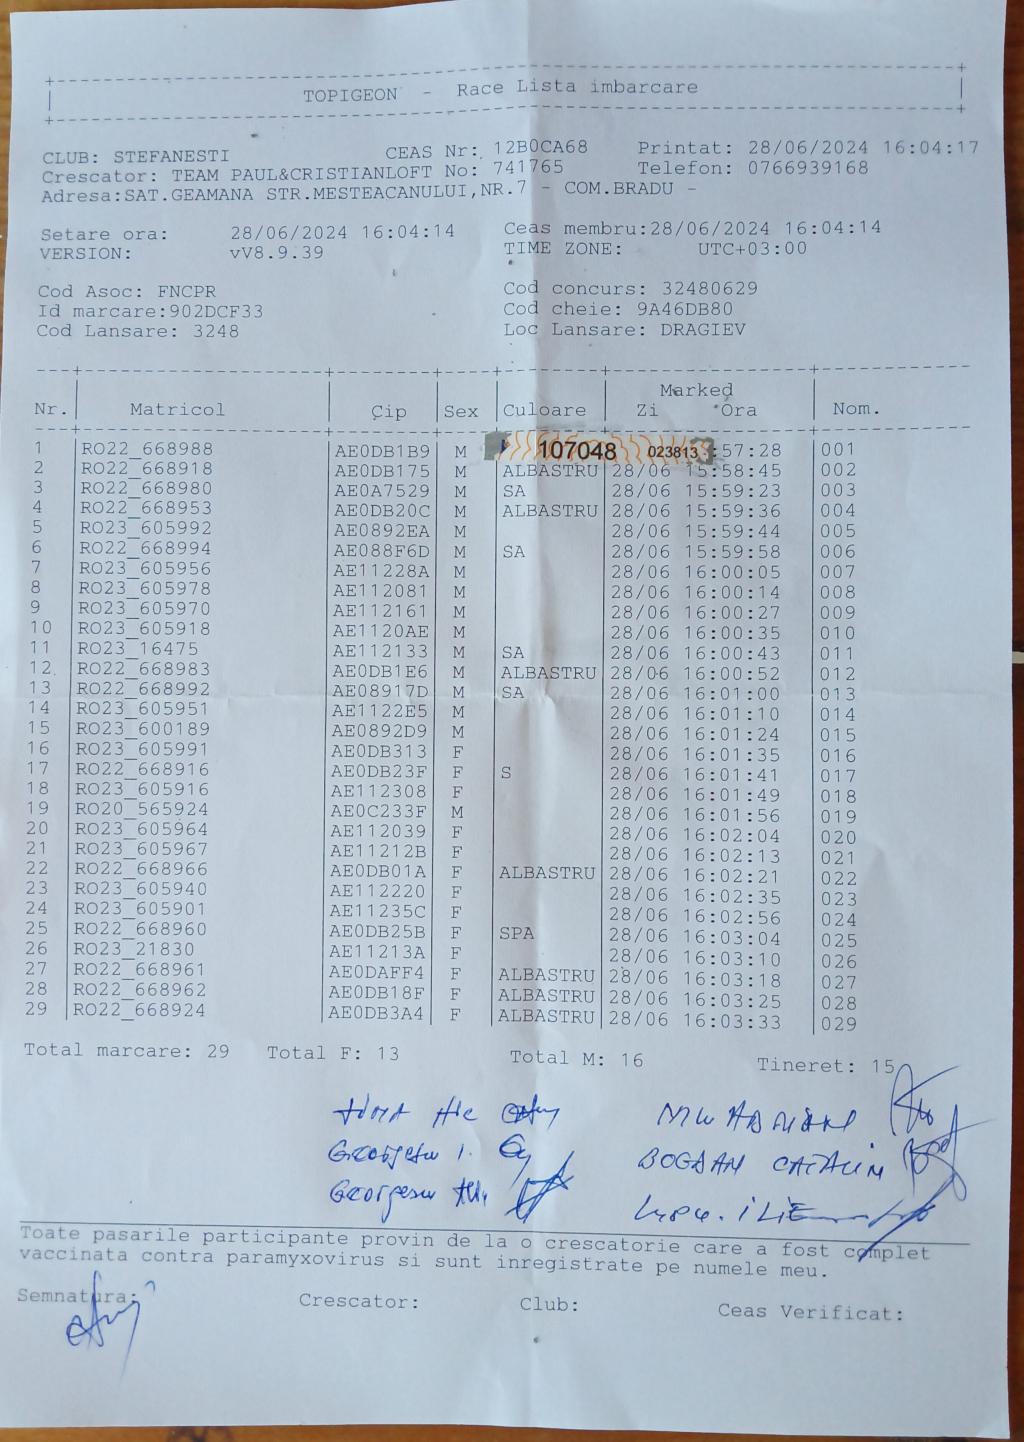 TOPIGEON - Race Lista imbarcare
CLUB: STEFANESTI CEAS Nr: 12B0CA68 Printat: 28/06/2024 16:04:17
Crescator: TEAM PAUL&CRISTIANLOFT No: 741765 Telefon: 0766939168
Adresa:SAT.GEAMANA STR.MESTEACANULUI,NR.7 - COM.BRADU -
Setare ora: 28/06/2024 16:04:14 Ceas membru:28/06/2024 16:04:14
VERSION: vV8.9.39 TIME ZONE: UTC+03:00
Cod Asoc: FNCPR Cod concurs: 32480629
Id marcare:902DCF33 Cod cheie: 9A46DB80
Cod Lansare: 3248 Loc Lansare: DRAGIEV
Marked
Nr. Matricol Çip Sex Culoare Zi Ora Nom.
1 RO22_668988 AE0DB1B9 M 107048 023813 :57:28 001
2 RO22_668918 AE0DB175 M ALBASTRU 28/06 15:58:45 002
3 RO22_668980 AE0A7529 M SA 28/06 15:59:23 003
4 RO22_668953 AE0DB20C M ALBASTRU 28/06 15:59:36 004
5 RO23_605992 AE0892EA M 28/06 15:59:44 005
6 RO22_668994 AE088F6D M SA 28/06 15:59:58 006
7 RO23_605956 AE11228A M 28/06 16:00:05 007
8 RO23_605978 AE112081 M 28/06 16:00:14 008
9 RO23_605970 AE112161 M 28/06 16:00:27 009
10 RO23_605918 AE1120AE M 28/06 16:00:35 010
11 RO23_16475 AE112133 M SA 28/06 16:00:43 011
12 RO22_668983 AE0DB1E6 M ALBASTRU 28/06 16:00:52 012
13 RO22_668992 AE08917D M SA 28/06 16:01:00 013
14 RO23_605951 AE1122E5 M 28/06 16:01:10 014
15 RO23_600189 AE0892D9 M 28/06 16:01:24 015
16 RO23_605991 AE0DB313 F 28/06 16:01:35 016
17 RO22_668916 AE0DB23F F S 28/06 16:01:41 017
18 RO23_605916 AE112308 F 28/06 16:01:49 018
19 RO20_565924 AE0C233F M 28/06 16:01:56 019
20 RO23_605964 AE112039 F 28/06 16:02:04 020
21 RO23_605967 AE11212B F 28/06 16:02:13 021
22 RO22_668966 AE0DB01A F ALBASTRU 28/06 16:02:21 022
23 RO23_605940 AE112220 F 28/06 16:02:35 023
24 RO23_605901 AE11235C F 28/06 16:02:56 024
25 RO22_668960 AE0DB25B F SPA 28/06 16:03:04 025
26 RO23_21830 AE11213A F 28/06 16:03:10 026
27 RO22_668961 AE0DAFF4 F ALBASTRU 28/06 16:03:18 027
28 RO22_668962 AE0DB18F F ALBASTRU 28/06 16:03:25 028
29 RO22_668924 AE0DB3A4 F ALBASTRU 28/06 16:03:33 029
Total marcare: 29 Total F: 13 Total M: 16 Tineret: 15
Georgescu I. BOGDAN CATALIN
Georgescu ILIE
Toate pasarile participante provin de la o crescatorie care a fost complet
vaccinata contra paramyxovirus si sunt inregistrate pe numele meu.
Semnatura: Crescator: Club: Ceas Verificat: